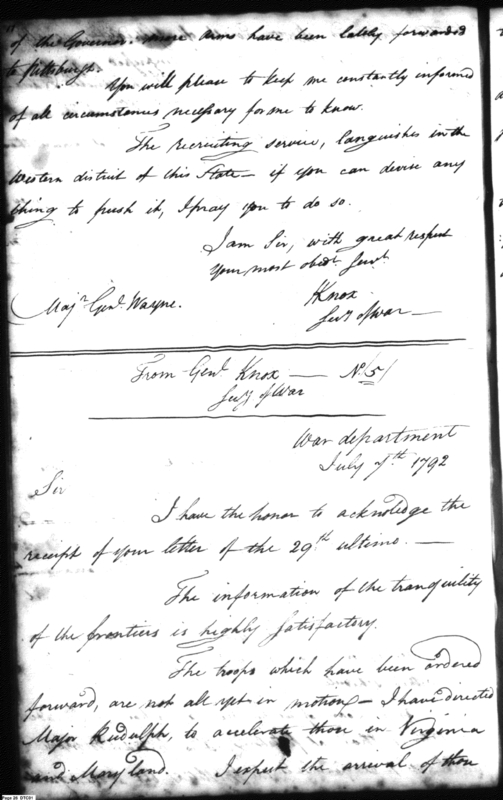 of the Governor. more arms have been lately forwarded
to Pittsburgh.
You will please to keep me constantly informed
of all circumstances necessary for me to know.
The recruiting service, languishes in the
Western district of this State – if you can devise any
thing to push it, I pray you to do so.
I am Sir, with great respect
Your most obedt. Servt.
HKnox
Secy of War –
Majr. Genl. Wayne.
From Genl Knox — No. 5/
Secy of War
War department
July 7th 1792
Sir
I have the honor to acknoledge the
receipt of your letter of the 29th ultimo. —
The information of the tranquility
of the frontiers is highly Satisfactory.
The troops which have been ordered
forward, are not all yet in motion – I have directed
Major Rudulph, to accelerate those in Virginia
and Maryland. I expect the arrival of those
Page 26 DTC01